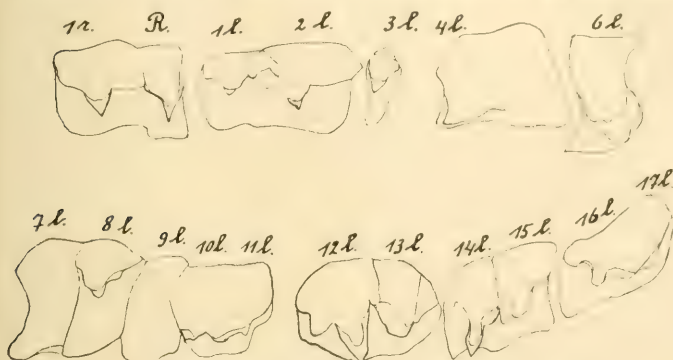 1 r. R. 1 l. 2 l. 3 l. 4 l. 6 l.
7 l. 8 l. 9 l. 10 l. 11 l. 12 l. 13 l. 14 l. 15 l. 16 l. 17 l.